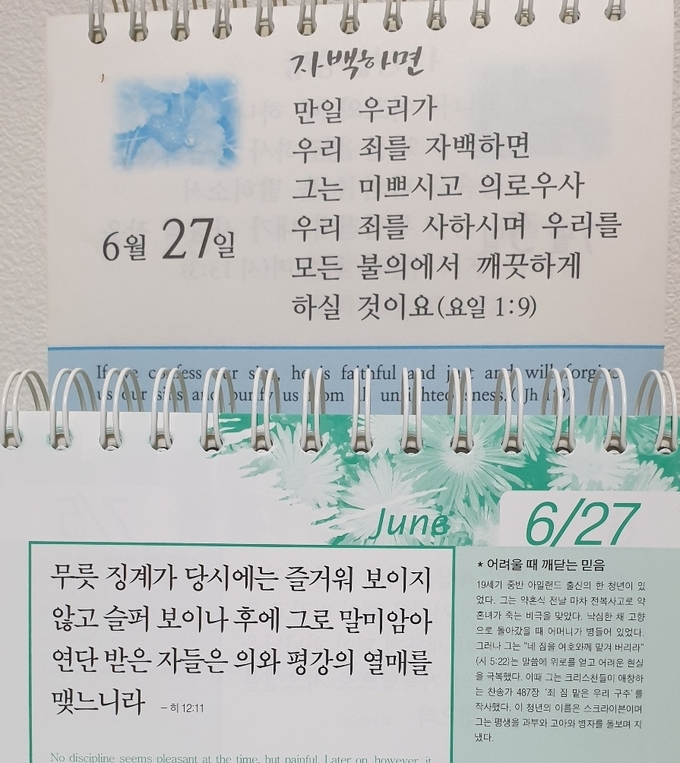 자백하면
만일 우리가
우리 죄를 자백하면
그는 미쁘시고 의로우사
우리 죄를 사하시며 우리를
모든 불의에서 깨끗하게
하실 것이요(요일 1:9)
6월 27일
If we confess our sins, he is faithful and just and will forgive
us our sins and purify us from all unrighteousness.
June 6/27
무릇 징계가 당시에는 즐거워 보이지
않고 슬퍼 보이나 후에 그로 말미암아
연단 받은 자들은 의와 평강의 열매를
맺느니라 - 히 12:11
No discipline seems pleasant at the time, but painful. Later on, however, it
* 어려울 때 깨닫는 믿음
19세기 중반 아일랜드 출신의 한 청년이 있
었다. 그는 약혼식 전날 마차 전복사고로 약
혼녀가 죽는 비극을 맞았다. 낙심한 채 고향
으로 돌아갔을 때 어머니가 병들어 있었다.
그러나 그는 "네 짐을 여호와께 맡겨 버리라"
(시 5:22)는 말씀에 위로를 얻고 어려운 현실
을 극복했다. 이때 그는 크리스천들이 애창하
는 찬송가 487장 '죄 짐 맡은 우리 구주'를
작사했다. 이 청년의 이름은 스크라이븐이며
그는 평생을 과부와 고아와 병자를 돌보며 지
냈다.